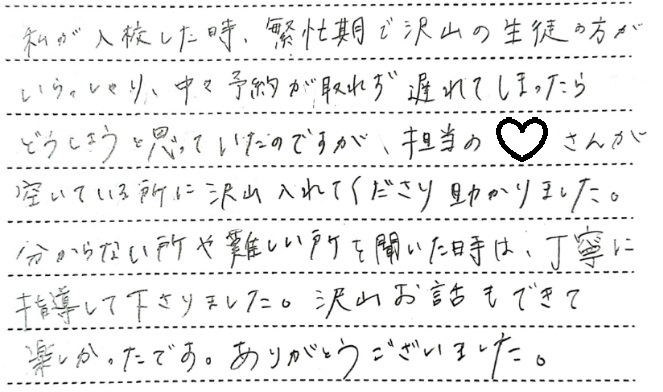 私が入校した時、繁忙期で沢山の生徒の方が
いらっしゃり、中々予約が取れず遅れてしまったら
どうしようと思っていたのですが、担当の♡さんが
空いている所に沢山入れてくださり助かりました。
分からない所や難しい所を聞いた時は、丁寧に
指導して下さりました。沢山お話もできて
楽しかったです。ありがとうございました。